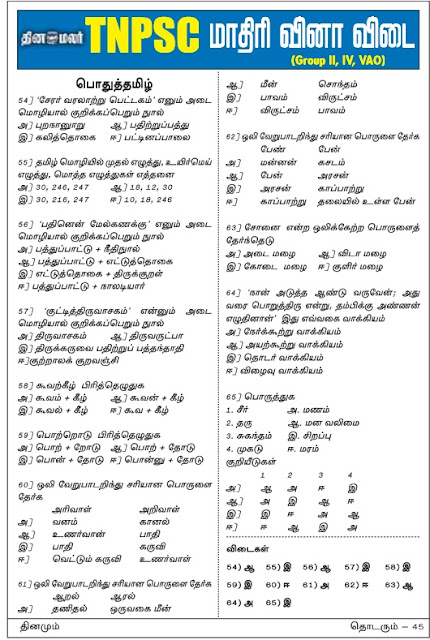 தினமலர் TNPSC மாதிரி வினா விடை
(Group II, IV, VAO)
பொதுத்தமிழ்
54] 'சேரர் வரலாற்று பெட்டகம்' எனும் அடை
மொழியால் குறிக்கப்பெறும் நூல்
அ] புறநானூறு ஆ] பதிற்றுப்பத்து
இ] கலித்தொகை ஈ] பட்டினப்பாலை
55] தமிழ் மொழியில் முதல் எழுத்து, உயிர்மெய்
எழுத்து, மொத்த எழுத்துகள் எத்தனை
அ] 30, 246, 247 ஆ] 18, 12, 30
இ] 30, 216, 247 ஈ] 10, 18, 246
56] 'பதினென் மேல்கணக்கு' எனும் அடை
மொழியால் குறிக்கப்பெறும் நூல்
அ] பத்துப்பாட்டு + நீதிநூல்
ஆ] பத்துப்பாட்டு + எட்டுத்தொகை
இ] எட்டுத்தொகை + திருக்குறள்
ஈ] பத்துப்பாட்டு + நாலடியார்
57] 'குட்டித்திருவாசகம்' என்னும் அடை
மொழியால் குறிக்கப்பெறும் நூல்
அ] திருவாசகம் ஆ] திருவருட்பா
இ] திருக்கருவை பதிற்றுப் பத்தந்தாதி
ஈ]குற்றாலக் குறவஞ்சி
58] கூவற்கீழ் பிரித்தெழுதுக
அ] கூவம் + கீழ் ஆ] கூவன் + கீழ்
இ] கூவல் + கீழ் ஈ] கூவ + கீழ்
59] பொற்றொடு பிரித்தெழுதுக
அ] பொற் + றோடு ஆ] பொற் + தோடு
இ] பொன் + தோடு ஈ] பொன்னு + தோடு
60] ஒலி வேறுபாடறிந்து சரியான பொருளை
தேர்க
அரிவாள் அறிவாள்
அ] வனம் கானல்
ஆ] உணர்வான் பாதி
இ] பாதி கருவி
ஈ] வெட்டும் கருவி உணர்வாள்
61] ஒலி வேறுபாடறிந்து சரியான பொருளை தேர்க
ஆறல் ஆரல்
அ] தணிதல் ஒருவகை மீன்
ஆ] மீன் சொந்தம்
இ] பாவம் விருட்சம்
ஈ] விருட்சம் பாவம்
62] ஒலி வேறுபாடறிந்து சரியான பொருளை தேர்க
பேண் பேன்
அ] மன்னன் கசடம்
ஆ] பேன் அரசன்
இ] அரசன் காப்பாற்று
ஈ] காப்பாற்று தலையில் உள்ள பேன்
63] சோனை என்ற ஒலிக்கேற்ற பொருளைத்
தேர்ந்தெடு
அ] அடை மழை ஆ] விடா மழை
இ] கோடை மழை ஈ] குளிர் மழை
64] 'நான் அடுத்த ஆண்டு வருவேன்; அது
வரை பொறுத்திரு என்று, தம்பிக்கு அண்ணன்
எழுதினான்' இது எவ்வகை வாக்கியம்
அ] நேர்க்கூற்று வாக்கியம்
ஆ] அயற்கூற்று வாக்கியம்
இ] தொடர் வாக்கியம்
ஈ] விழைவு வாக்கியம்
65] பொருத்துக
1. சீர் அ. மணம்
2. தரு ஆ. மன வலிமை
3. சுகந்தம் இ. சிறப்பு
4. முகடு ஈ. மரம்
குறியீடுகள்
1 2 3 4
அ] ஆ அ ஈ இ
ஆ] அ இ ஆ ஈ
இ] இ ஈ அ ஆ
ஈ] ஈ ஆ இ அ
விடைகள்
54) ஆ 55) இ 56) ஆ 57) இ 58) இ
59) இ 60) ஈ 61) அ 62) ஈ 63) ஆ
64) அ 65) இ
தினமும் தொடரும் – 45